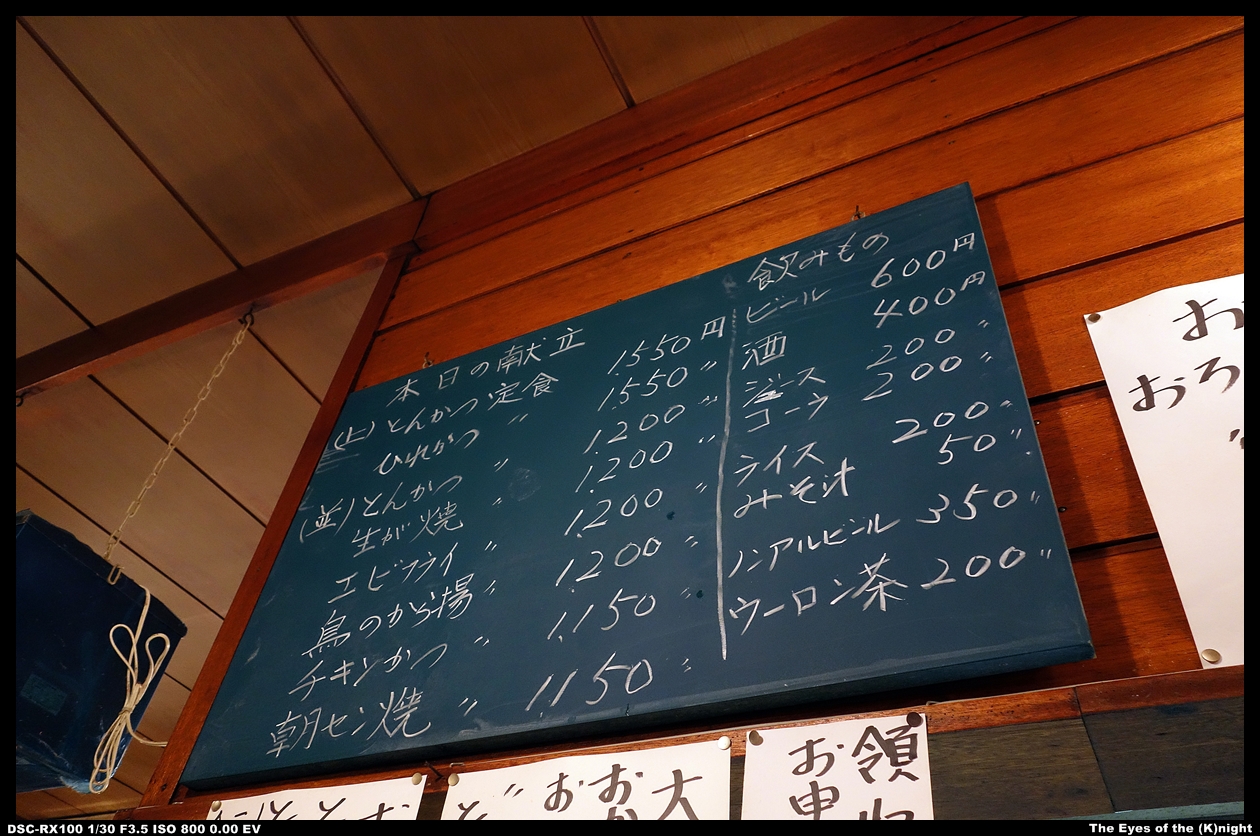 本日の献立
(上)とんかつ定食 1550円
ひれかつ 〃 1550〃
(並)とんかつ 〃 1200〃
生が焼 〃 1200〃
エビフライ 〃 1200〃
鳥のから揚〃 1200〃
チキンかつ 〃 1,150〃
朝セン焼 〃 1150〃
飲みもの
ビール 600円
酒 400円
ジュース 200〃
コーラ 200〃
ライス 200〃
みそ汁 50〃
ノンアルビール 350〃
ウーロン茶 200〃
お
おろ
大
おお
領
お申
DSC-RX100 1/30 F3.5 ISO 800 0.00 EV
The Eyes of the (K)night